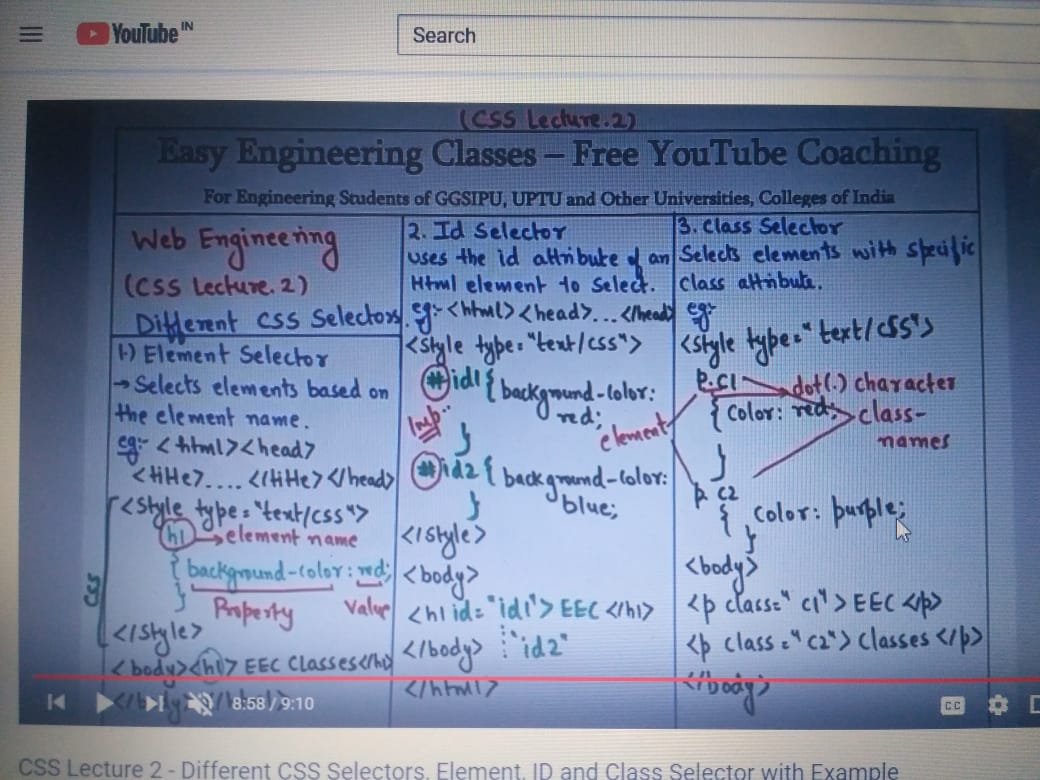 YouTube IN
Search
(CSS Lecture.2)
Easy Engineering Classes – Free YouTube Coaching
For Engineering Students of GGSIPU, UPTU and Other Universities, Colleges of India
Web Engineering
(CSS Lecture.2)
Different CSS Selectors.
1.) Element Selector
→ Selects elements based on
the element name.
eg:- <html><head>
<title>....</title></head>
<style type="text/css">
h1 → element name
{ background-color: red;
}
Property Value
</style>
<body><h1> EEC Classes</h1>
</body></html>
2. Id Selector
uses the id attribute of an
Html element to select.
eg:- <html><head>...</head>
<style type="text/css">
#id1 { background-color:
red;
Imp.
}
#id2 { background-color:
blue;
}
</style>
<body>
<h1 id="id1"> EEC </h1>
</body> "id2"
</html>
3. Class Selector
Selects elements with specific
Class attribute.
eg:-
<style type="text/css">
p.c1 dot(.) character
{ color: red;
element
class-
names
}
p. c2
{ color: purple;
}
<body>
<p class="c1"> EEC </p>
<p class="c2"> Classes </p>
</body>
8:58 / 9:10
CC
CSS Lecture 2 - Different CSS Selectors, Element, ID and Class Selector with Example